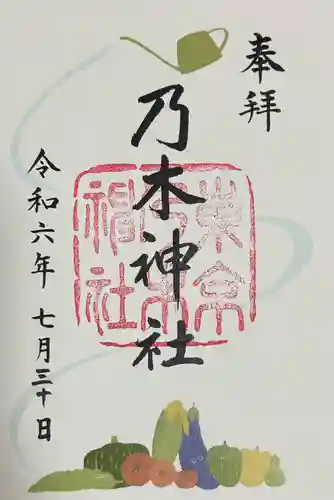 奉拝
乃木神社
東京乃木神社
令和六年 七月三十日